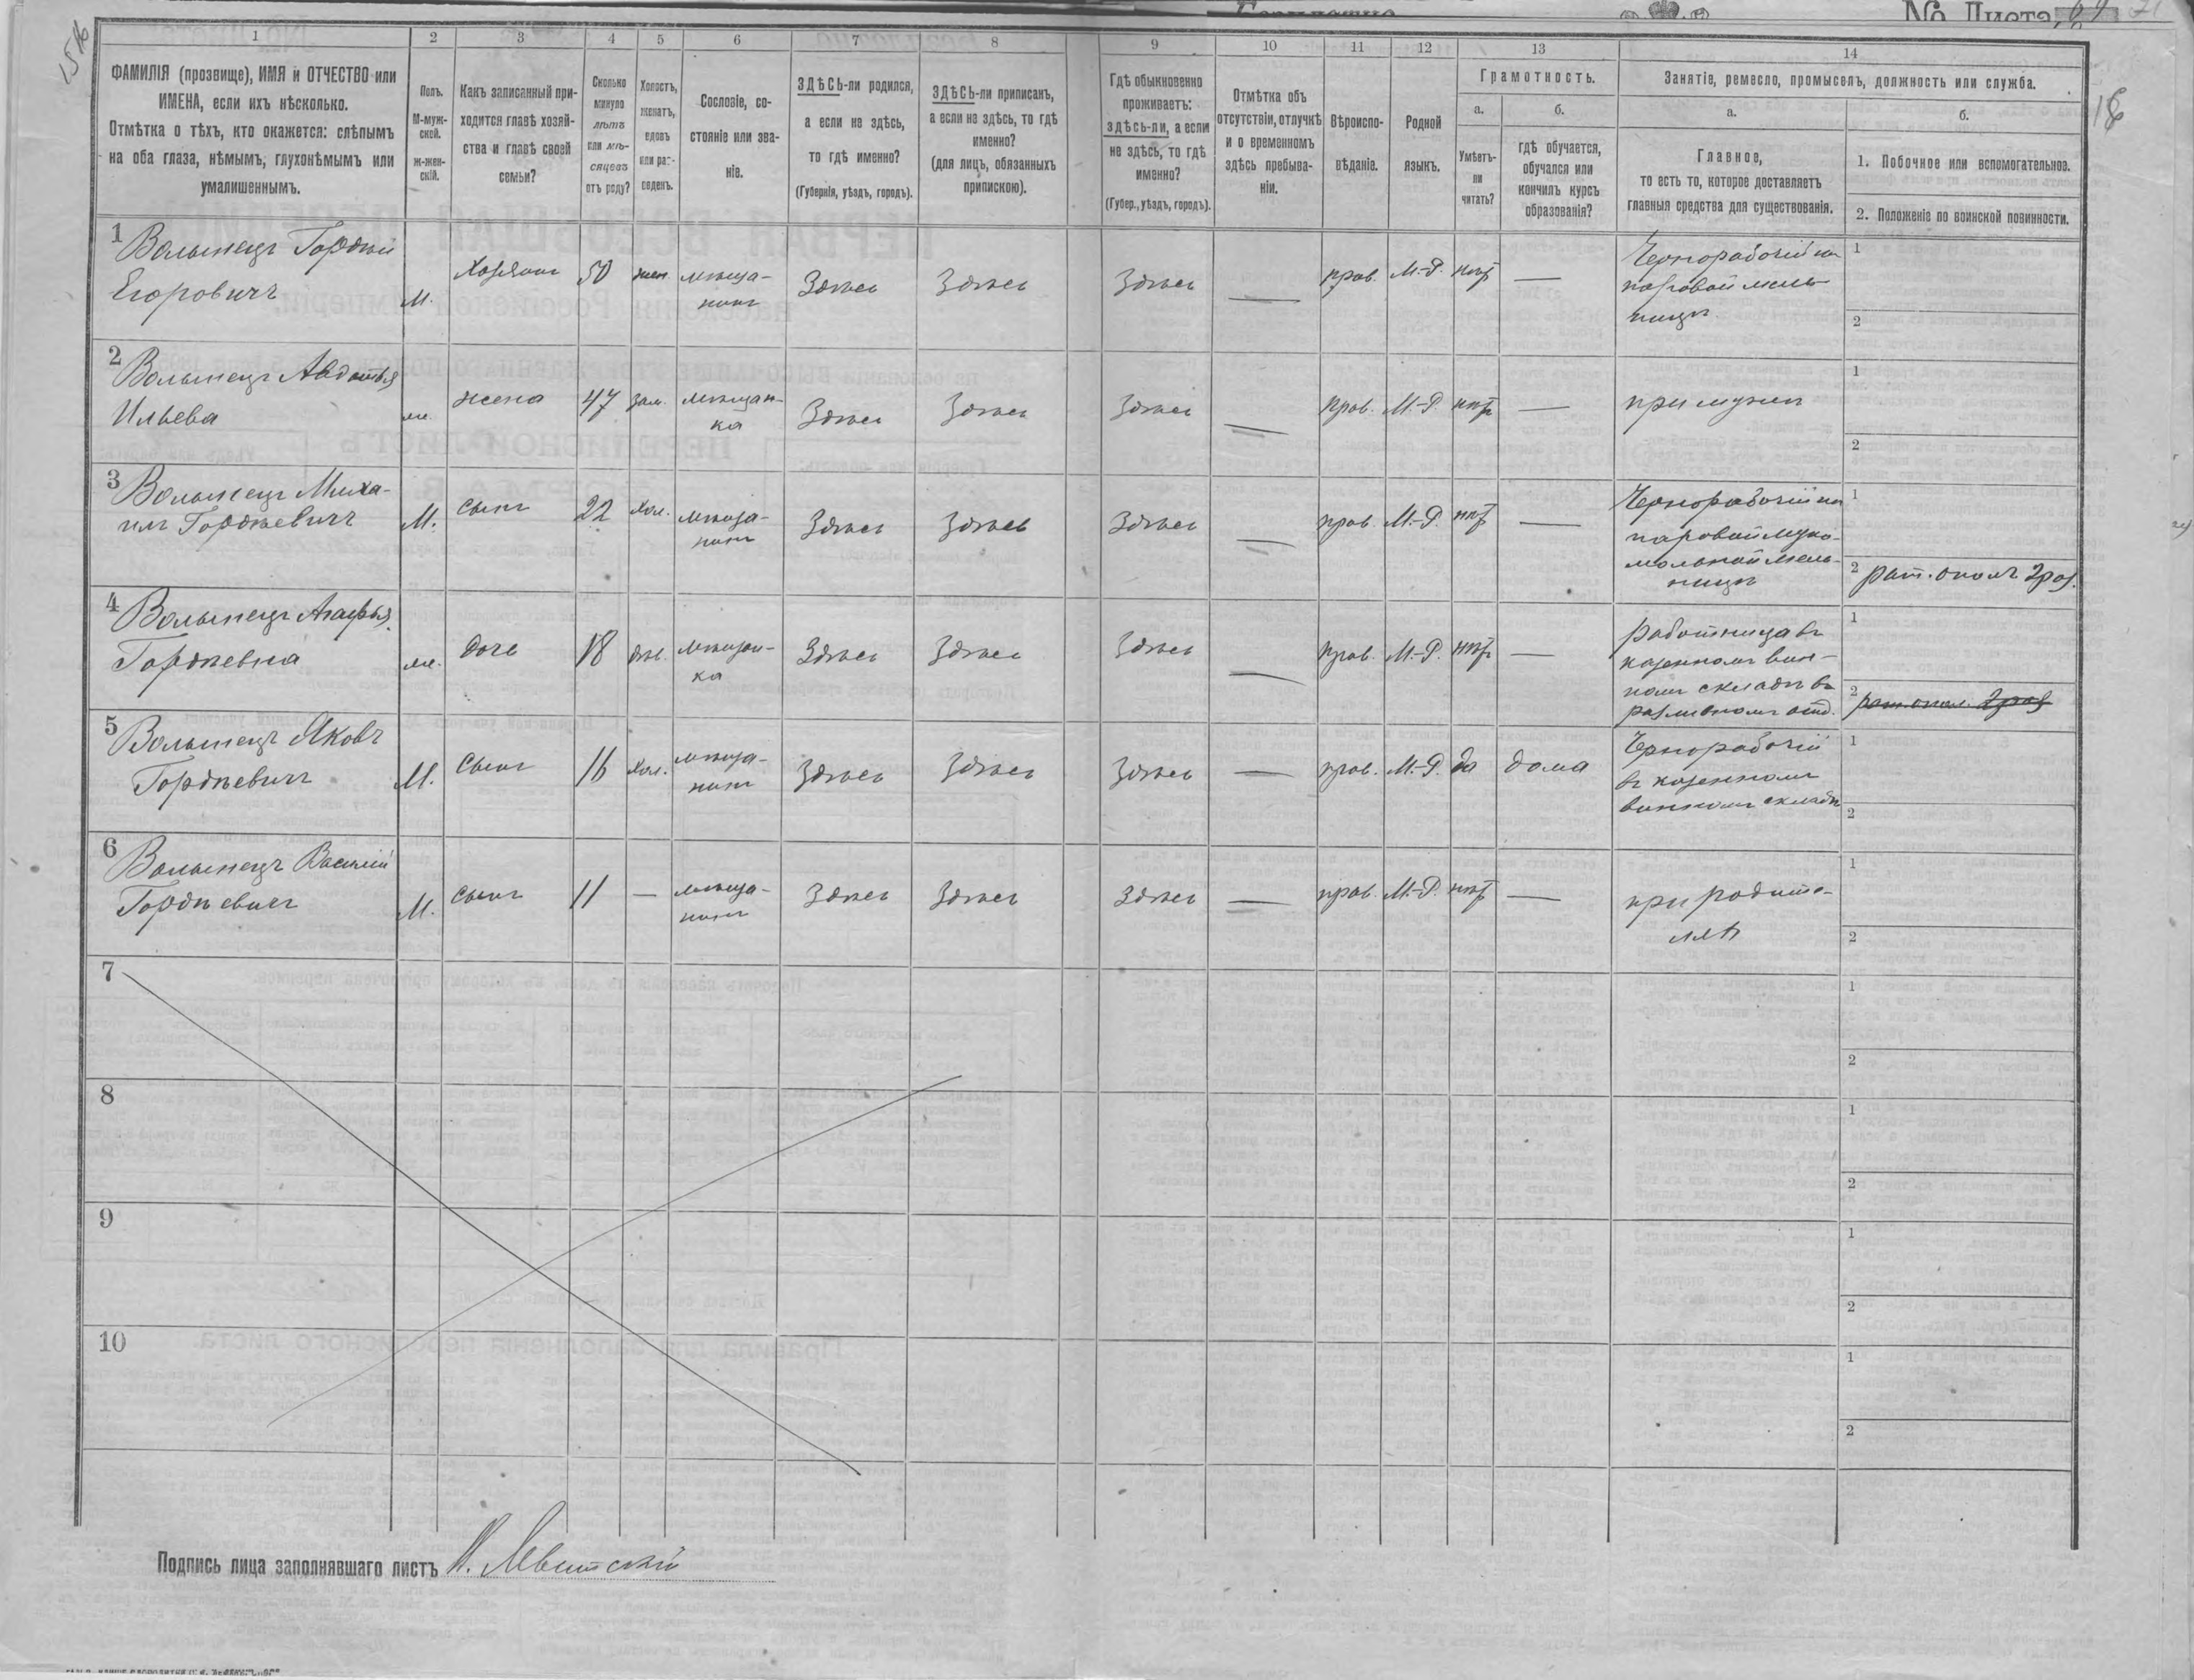 № Листа
1
2
3
4
5
6
7
8
9
10
11
12
13
14
ФАМИЛІЯ (прозвище), ИМЯ и ОТЧЕСТВО или
ИМЕНА, если ихъ нѣсколько.
Отмѣтка о тѣхъ, кто окажется: слѣпымъ
на оба глаза, нѣмымъ, глухонѣмымъ или
умалишеннымъ.
Полъ.
М-муж-
ской.
ж-жен-
скій.
Какъ записанный при-
ходится главѣ хозяй-
ства и главѣ своей
семьи?
Сколько
минуло
лѣтъ
или мѣ-
сяцевъ
отъ роду?
Холостъ,
женатъ,
вдовъ
или раз-
веденъ.
Сословіе, со-
стояніе или зва-
ніе.
ЗДѢСЬ-ли родился,
а если не здѣсь,
то гдѣ именно?
(Губернія, уѣздъ, городъ).
ЗДѢСЬ-ли приписанъ,
а если не здѣсь, то гдѣ
именно?
(для лицъ, обязанныхъ
припискою).
Гдѣ обыкновенно
проживаетъ:
здѣсь-ли, а если
не здѣсь, то гдѣ
именно?
(Губер., уѣздъ, городъ).
Отмѣтка объ
отсутствіи, отлучкѣ
и о временномъ
здѣсь пребыва-
ніи.
Вѣроиспо-
вѣданіе.
Родной
языкъ.
Грамотность.
а.
б.
Умѣетъ-
ли
читать?
гдѣ обучается,
обучался или
кончилъ курсъ
образованія?
Занятіе, ремесло, промыселъ, должность или служба.
а.
б.
Главное,
то есть то, которое доставляетъ
главныя средства для существованія.
1. Побочное или вспомогательное.
2. Положеніе по воинской повинности.
1
Волынецъ Гордѣй
Егоровичъ
М.
Хозяинъ
50
жен.
мѣща-
нинъ
Здѣсь
Здѣсь
Здѣсь
—
прав.
М.-Р.
нѣт
—
Чернорабочій на
паровой мель
ницѣ
1
2
2
Волынецъ Авдотья
Ильева
ж.
жена
47
зам.
мѣщан-
ка
Здѣсь
Здѣсь
Здѣсь
—
прав.
М.-Р.
нѣт
—
при мужѣ
1
2
3
Волынецъ Миха-
илъ Гордѣевичъ
М.
сынъ
22
хол.
мѣща-
нинъ
Здѣсь
Здѣсь
Здѣсь
—
прав.
М.-Р.
нѣт
—
Чернорабочій на
паровой муко-
мольной мель-
ницѣ
1
2 рат. ополч. 2 раз.
4
Волынецъ Агафья
Гордѣевна
ж.
дочь
18
дѣв.
мѣщан-
ка
Здѣсь
Здѣсь
Здѣсь
—
прав.
М.-Р.
нѣт
—
работница въ
казенномъ вин-
номъ складѣ въ
разливномъ отд.
1
2 рат. опол. 2 раз
5
Волынецъ Яковъ
Гордѣевичъ
М.
сынъ
16
хол.
мѣща-
нинъ
Здѣсь
Здѣсь
Здѣсь
—
прав.
М.-Р.
да
дома
Чернорабочій
въ казенномъ
винномъ складѣ
1
2
6
Волынецъ Василій
Гордѣевичъ
М.
сынъ
11
—
мѣща-
нинъ
Здѣсь
Здѣсь
Здѣсь
—
прав.
М.-Р.
нѣт
—
при родите-
лѣ
1
2
7
1
2
8
1
2
9
1
2
10
1
2
Подпись лица заполнявшаго листъ Н. Левитскій